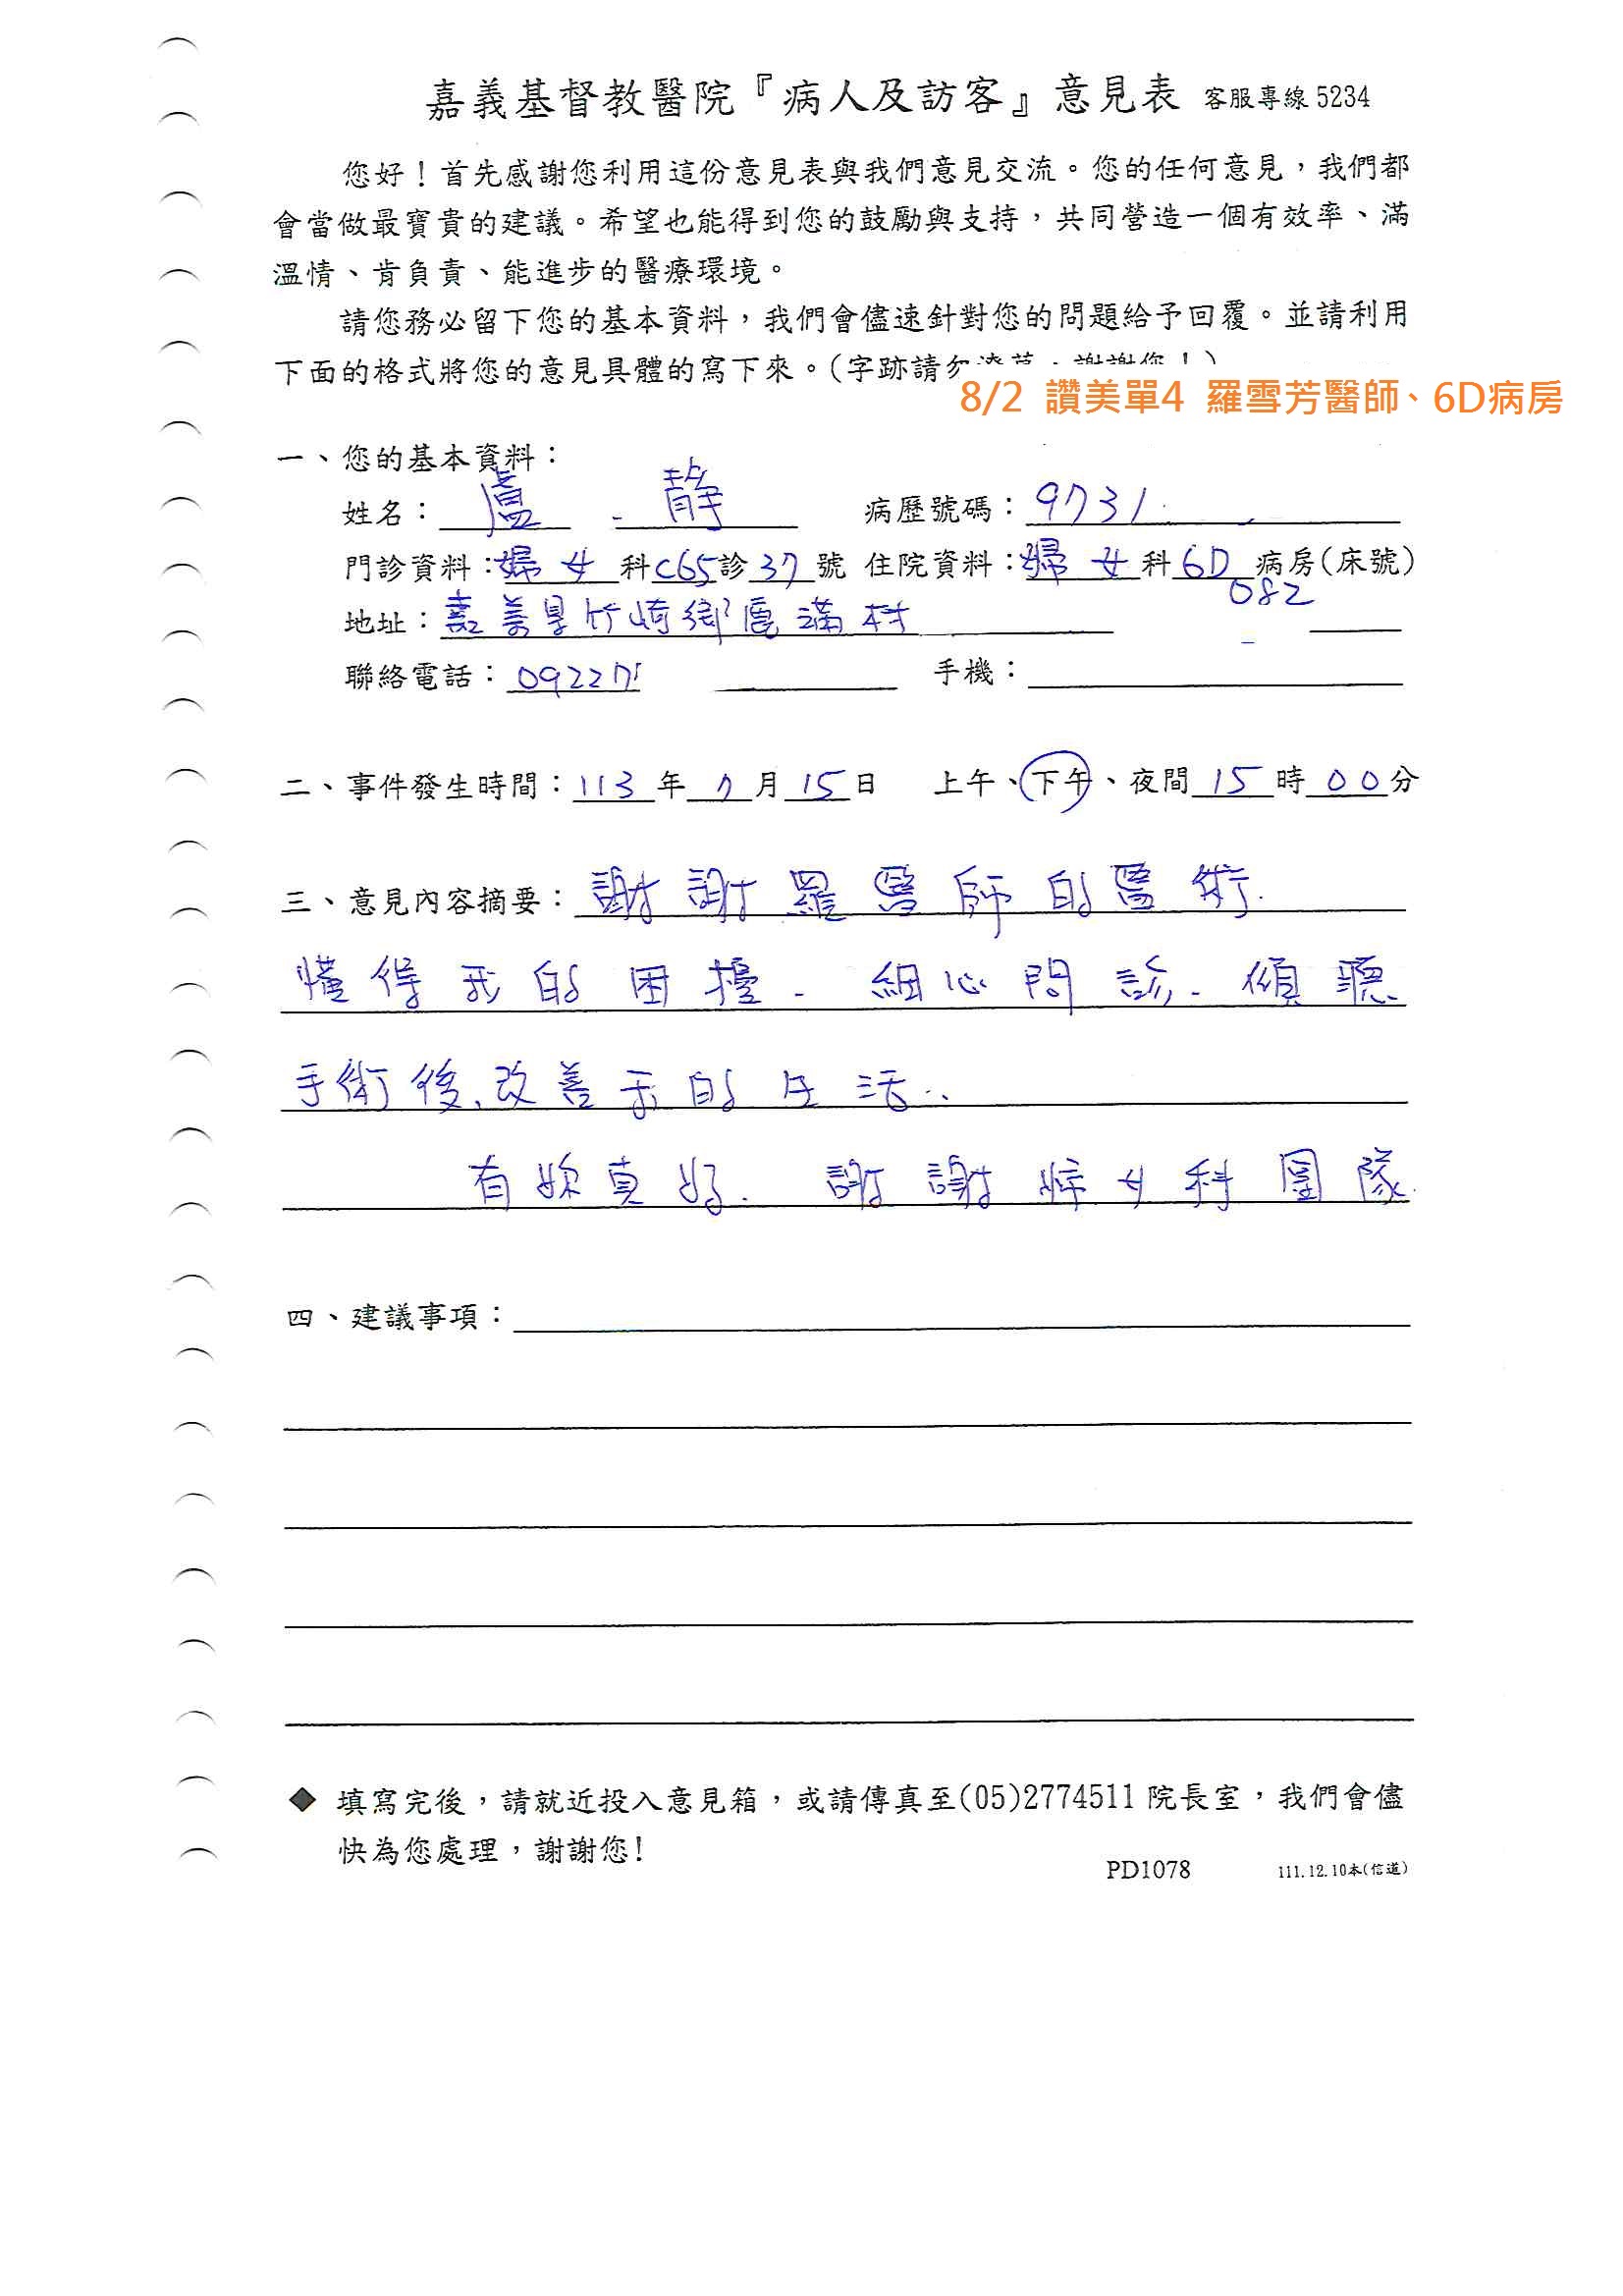 嘉義基督教醫院『病人及訪客』意見表 客服專線 5234
您好！首先感謝您利用這份意見表與我們意見交流。您的任何意見，我們都
會當做最寶貴的建議。希望也能得到您的鼓勵與支持，共同營造一個有效率、滿
溫情、肯負責、能進步的醫療環境。
請您務必留下您的基本資料，我們會儘速針對您的問題給予回覆。並請利用
下面的格式將您的意見具體的寫下來。(字跡請勿
8/2 讚美單4 羅雪芳醫師、6D病房
一、您的基本資料：
姓名：盧 靜 病歷號碼：9731
門診資料：婦女科C65診37號 住院資料：婦女科6D病房(床號)
082
地址：嘉義縣竹崎鄉鹿滿村
聯絡電話：0922 手機：
二、事件發生時間：113年7月15日 上午、下午、夜間15時00分
三、意見內容摘要：謝謝羅醫師的醫術.
懂得我的困擾. 細心問診. 傾聽
手術後、改善我的生活..
有妳真好. 謝謝婦女科團隊.
四、建議事項：
◆ 填寫完後，請就近投入意見箱，或請傳真至(05)2774511 院長室，我們會儘
快為您處理，謝謝您!
PD1078 111.12.10本(信道)